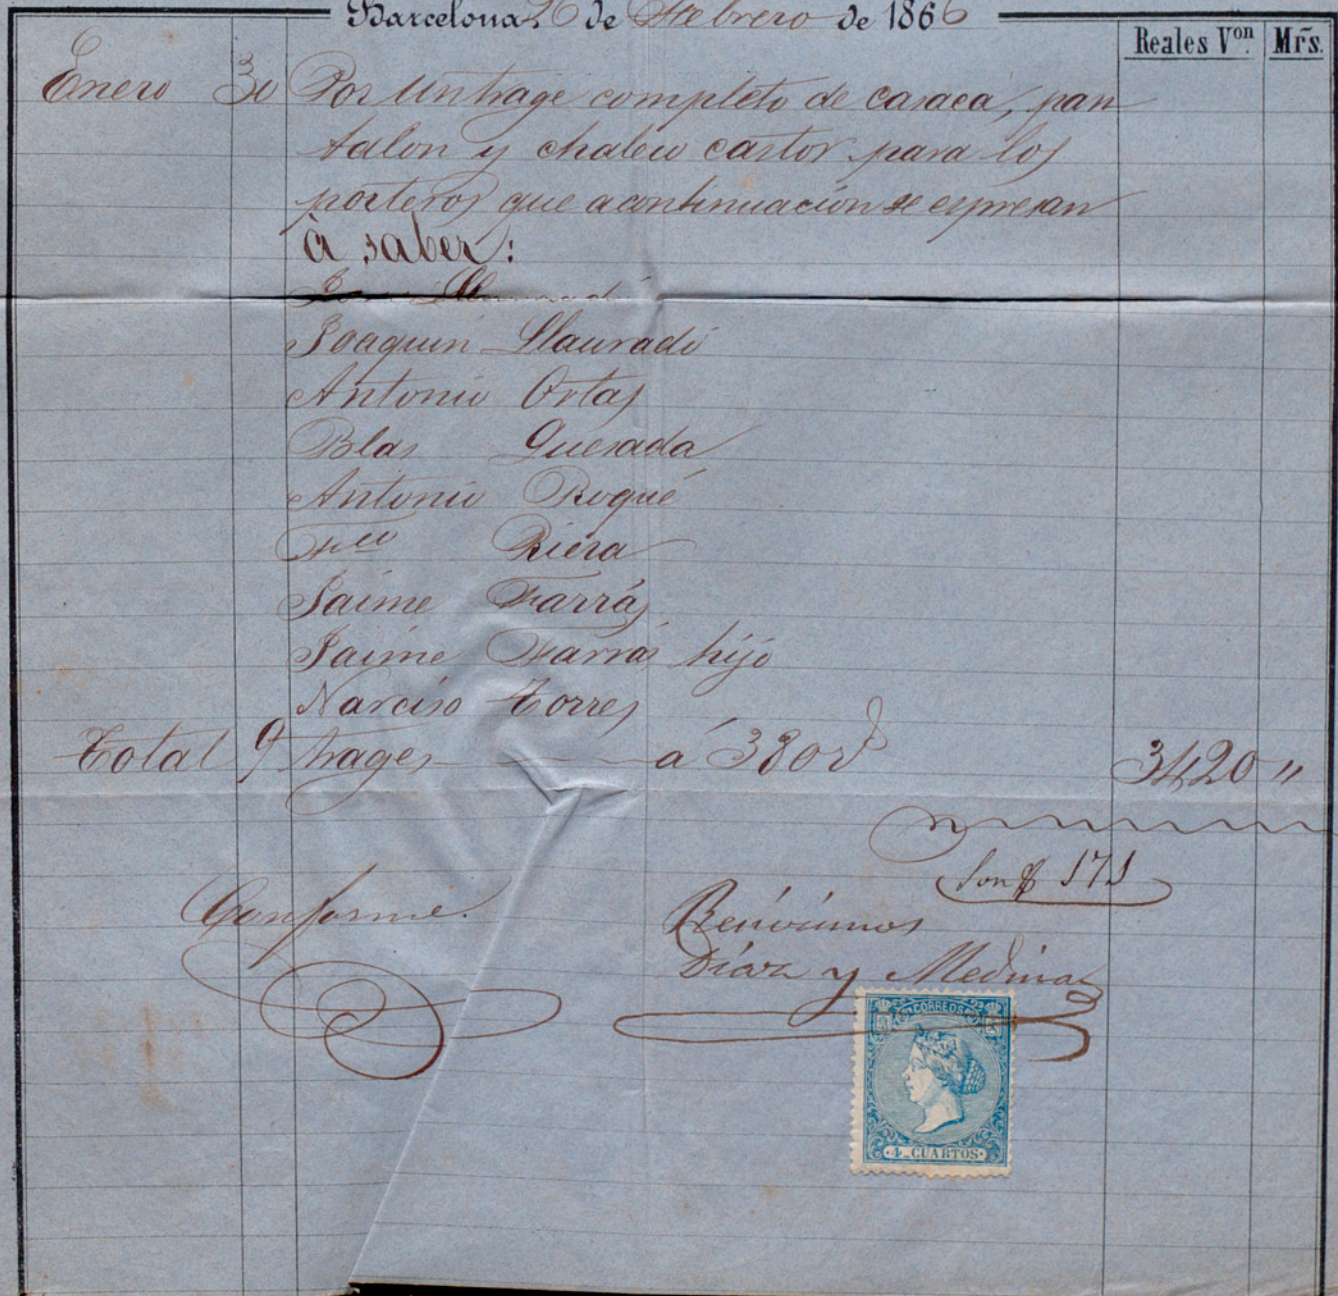 Barcelona 26 de Febrero de 1866
Reales Vᵒⁿ. Mr̃s.
Enero 30 Por un trage completo de casaca, pan
talon y chaleco castor para los
porteros que acontinuación se espresan
à saber:
Joaquin Llauradó
Antonio Ortas
Blas Quesada
Antonio Roqué
Fᶜᵒ Riera
Jaime Farrás
Jaime Farrás hijo
Narciso Torres
Total 9 trages a 380 3420 "
Son 171
Conforme. Recivimos
Díaz y Medina
CORREOS
4 CUARTOS